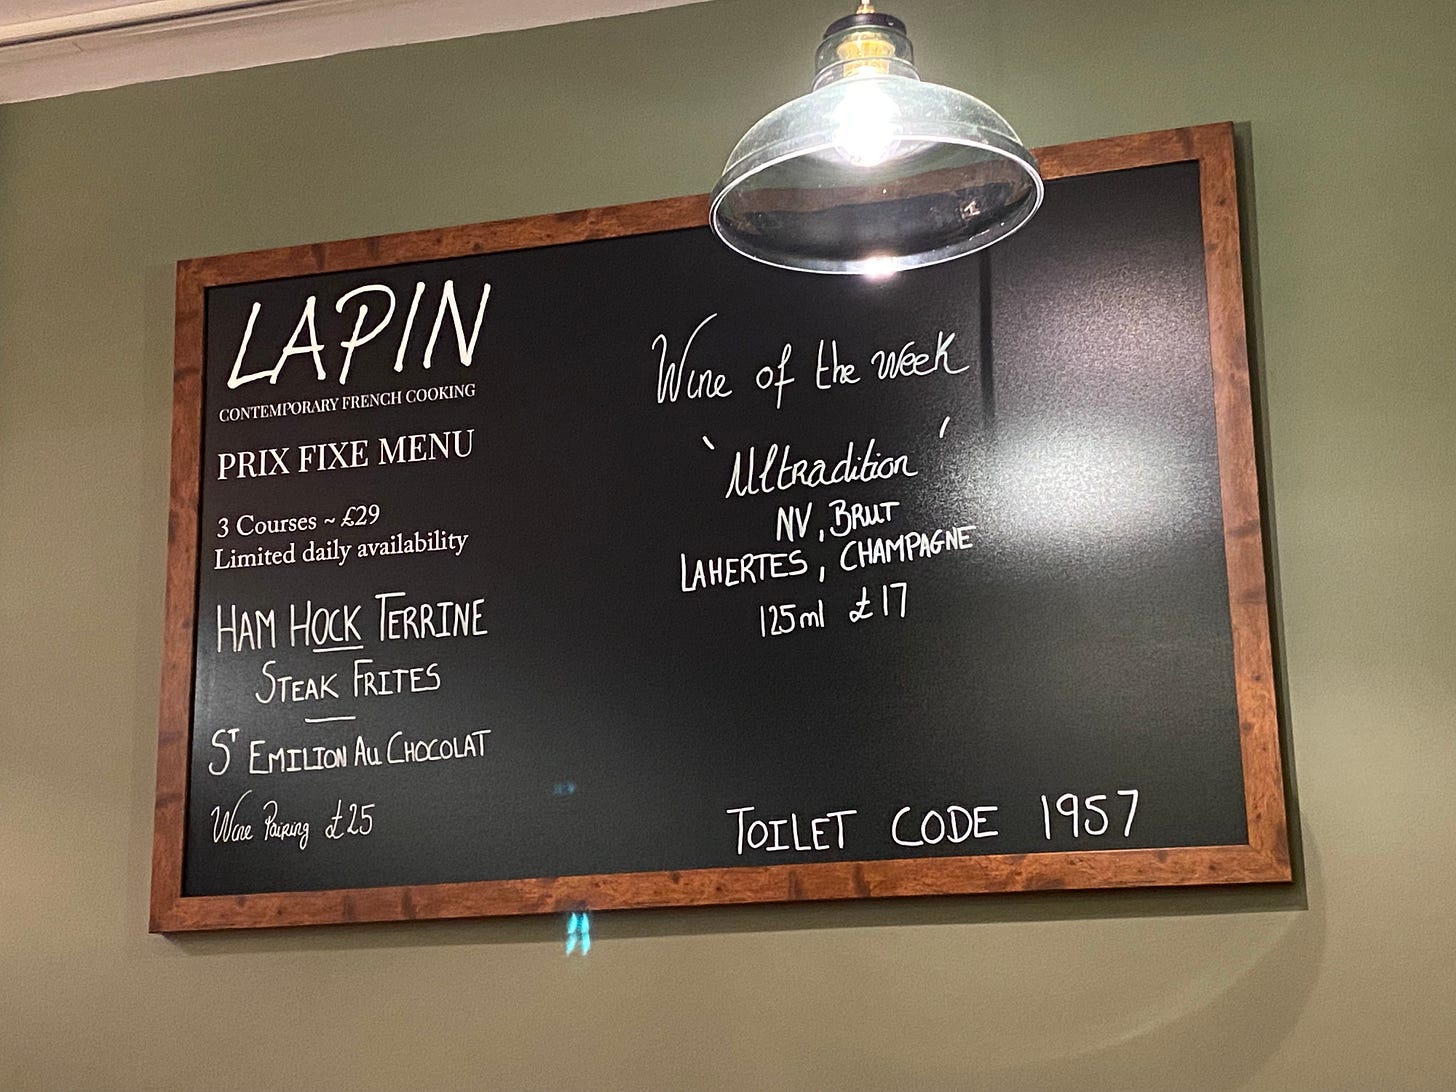 LAPIN
CONTEMPORARY FRENCH COOKING
PRIX FIXE MENU
3 Courses ~ £29
Limited daily availability
HAM HOCK TERRINE
STEAK FRITES
ST EMILION AU CHOCOLAT
Wine Pairing £25
Wine of the week
'Ultradition'
NV, BRUT
LAHERTES, CHAMPAGNE
125ml £17
TOILET CODE 1957